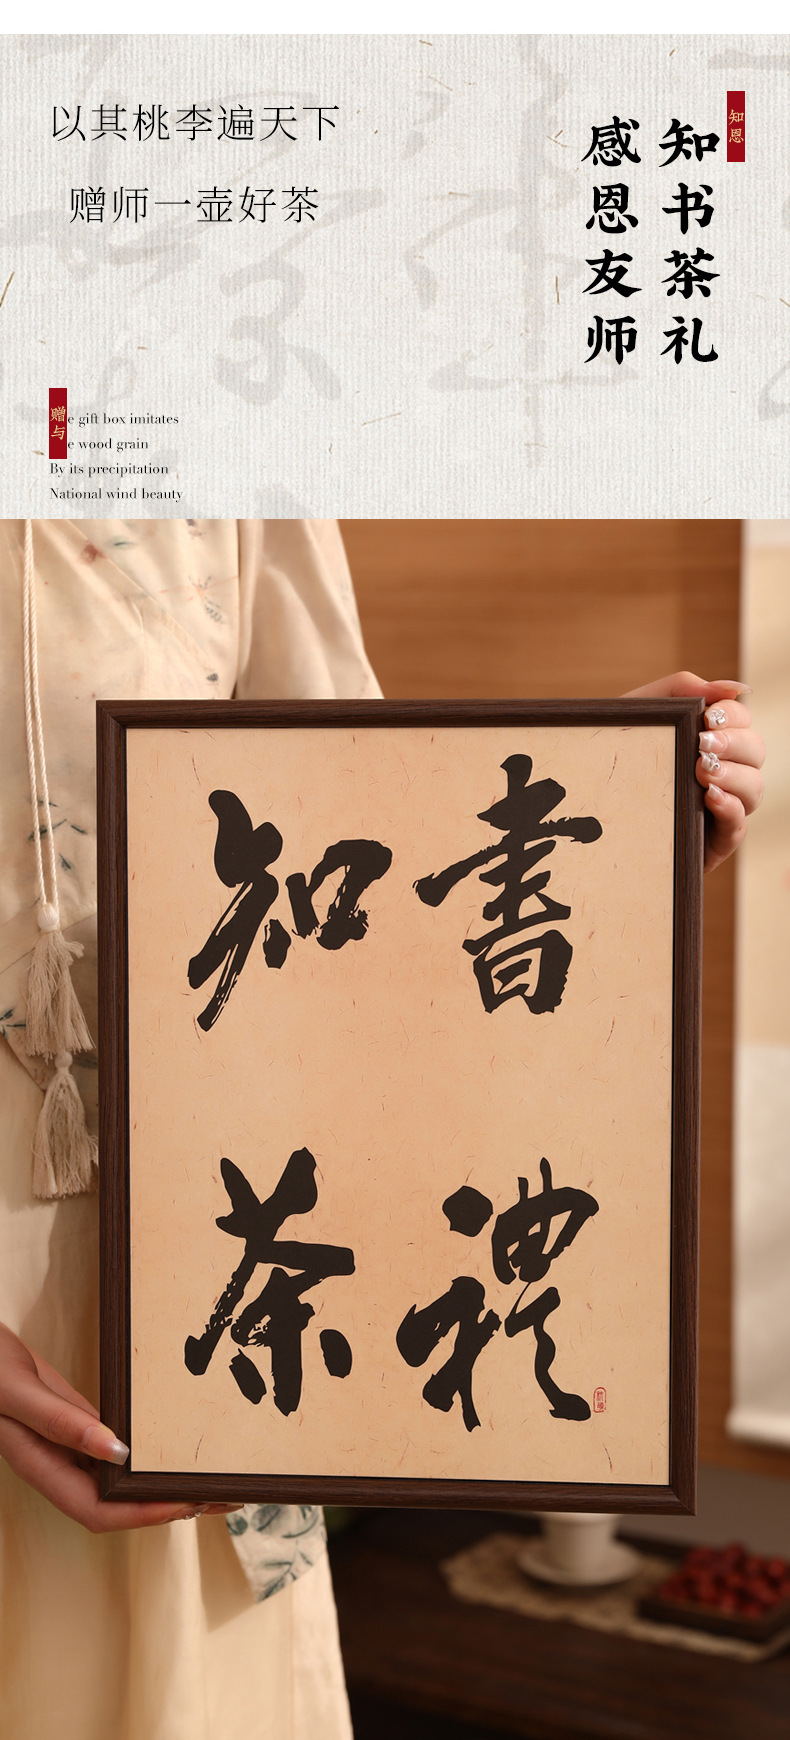 以其桃李遍天下
赠师一壶好茶
知恩
知书茶礼
感恩友师
赠与
e gift box imitates
e wood grain
By its precipitation
National wind beauty
知書
茶禮